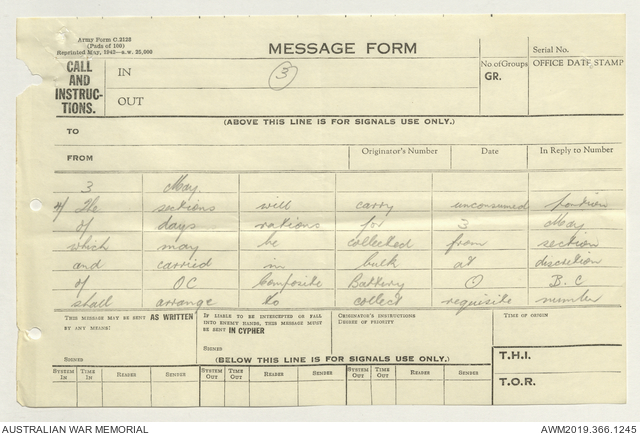 Army Form C.2128
(Pads of 100)
Reprinted May, 1942—a.w. 25,000
MESSAGE FORM
Serial No.
CALL AND INSTRUC- TIONS.
IN
3
No of Groups
GR.
OFFICE DATE STAMP
OUT
(ABOVE THIS LINE IS FOR SIGNALS USE ONLY.)
TO
FROM
Originator's Number
Date
In Reply to Number
3 May
The sections will carry unconsumed portion
of days rations for 3 May
which may be collected from section
and carried in bulk at discretion
of OC Composite Battery B.C
shall arrange to collect requisite number
THIS MESSAGE MAY BE SENT AS WRITTEN
BY ANY MEANS:
IF LIABLE TO BE INTERCEPTED OR FALL
INTO ENEMY HANDS, THIS MESSAGE MUST
BE SENT IN CYPHER
ORIGINATOR'S INSTRUCTIONS
DEGREE OF PRIORITY
TIME OF ORIGIN
SIGNED
SIGNED
(BELOW THIS LINE IS FOR SIGNALS USE ONLY.)
T.H.I.
SYSTEM IN
TIME IN
READER
SENDER
SYSTEM OUT
TIME OUT
READER
SENDER
SYSTEM OUT
TIME OUT
READER
SENDER
T.O.R.
AUSTRALIAN WAR MEMORIAL
AWM2019.366.1245